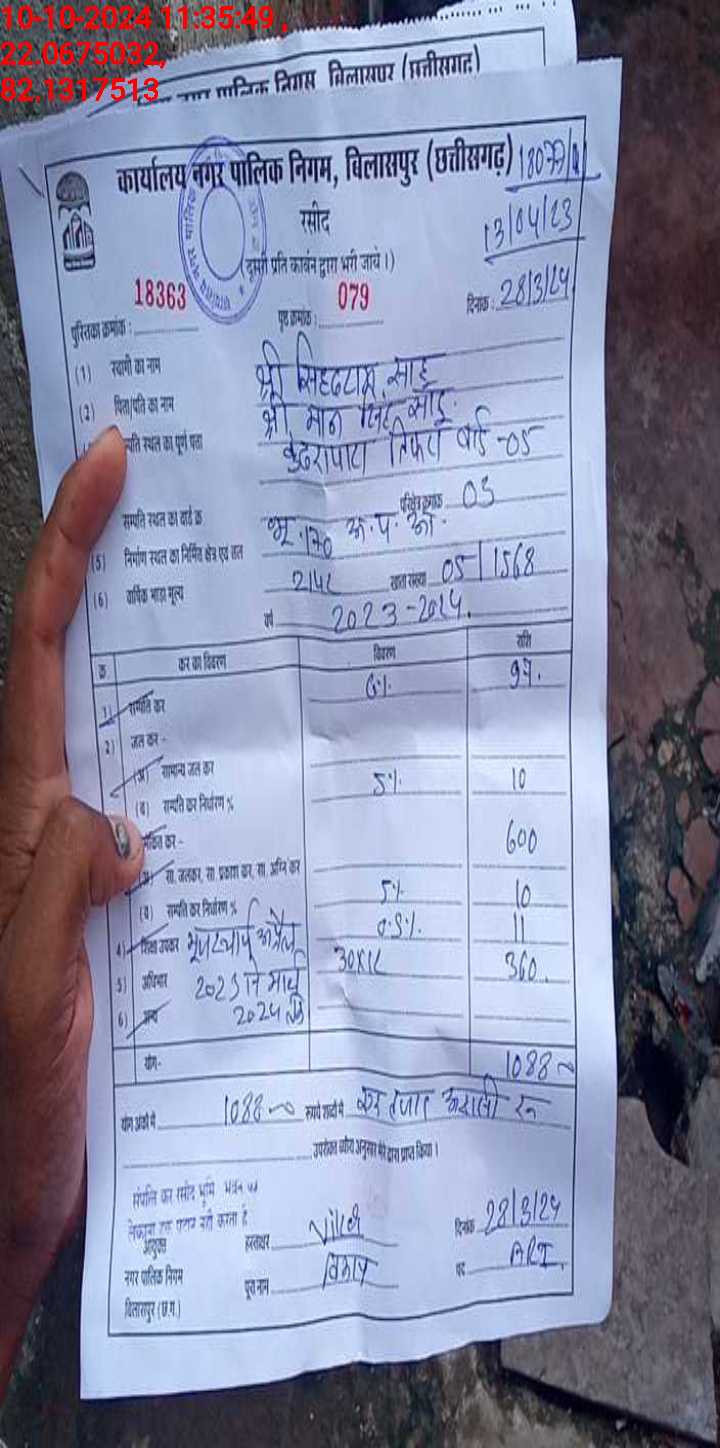 10-10-2024 11:35:49,
22.0675032,
82.1317513
पालिक निगम बिलासपुर (छत्तीसगढ़)
कार्यालय नगर पालिक निगम, बिलासपुर (छत्तीसगढ़)
रसीद
13/04/23
(दूसरी प्रति कार्बन द्वारा भरी जावे।)
पुस्तिका क्रमांक : 18363 पृष्ठ क्रमांक : 079 दिनांक : 28/3/24
(1) स्वामी का नाम श्री साहू
(2) पिता/पति का नाम श्री मान सिंह साहू
स्थल का पूर्ण पता तिफरा वार्ड -05
सम्पति स्थल का वार्ड क्र परिक्षेत्र क्रमांक 03
(5) निर्माण स्थल का निर्मित क्षेत्र एवं भू. 170
(6) वार्षिक भाड़ा मूल्य 2142 खाता संख्या 05/1568
वर्ष 2023-2024.
क्र. कर का विवरण विवरण राशि
1) सम्पति कर 6% 97.
2) जल कर -
(अ) सामान्य जल कर
(ब) सम्पति कर निर्धारण % 5% 10
कर - 600
(अ) सा. जलकर, सा. प्रकाश कर, सा. अग्नि कर
(ब) सम्पति कर निर्धारण % 5% 10
4) शिक्षा उपकर अप्रैल 0.5% 11
5) अधिभार 2023 से मार्च 30x12 360.
6) अन्य 2024 तक
योग- 1088
योग अंकों में 1088 रूपये शब्दों में एक हजार अठासी रु
उपरोक्त ब्यौरा अनुसार मेरे द्वारा प्राप्त किया।
संपत्ति कर रसीद भूमि भवन
नहीं करता है
आयुक्त हस्ताक्षर दिनांक 28/3/24
नगर पालिक निगम पूरा नाम पद ARI.
बिलासपुर (छ.ग.)